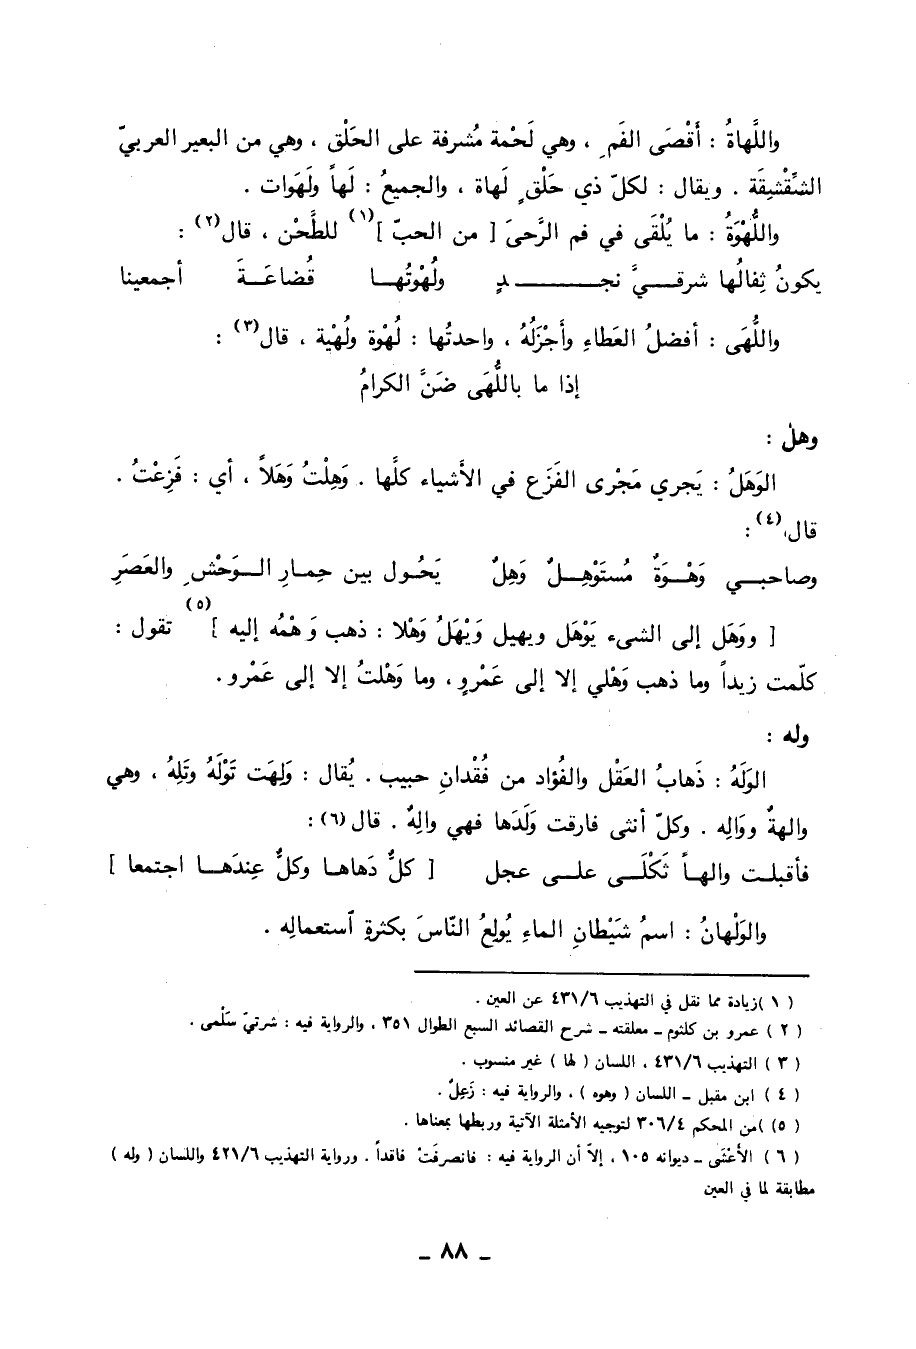 واللَّهاةُ : أَقْصَى الفَمِ ، وهي لَحْمة مُشرفة على الحَلْق ، وهي من البعير العربيّ
الشِّقْشِقَة . ويقال : لكلّ ذي حَلْقٍ لَهاة ، والجميعُ : لَهاً ولَهَوات .
واللُّهْوَةُ : ما يُلْقَى في فم الرَّحىَ [ من الحبّ ](١) للطَّحْن ، قال(٢) :
يكونُ ثِفالُها شرقيَّ نجدٍ ولُهْوتُها قُضاعَةَ أجمعينا
واللُّهَى : أفضلُ العَطاءِ وأَجْزَلُهُ ، واحدتُها : لُهْوة ولُهْية ، قال(٣) :
إذا ما باللُّهَى ضَنَّ الكرامُ
وهل :
الوَهَلُ : يَجري مَجْرى الفَزَع في الأَشياء كلَّها . وَهِلْتُ وَهَلاً ، أي : فَزِعْتُ .
قال(٤) :
وصاحبي وَهْوَةٌ مُستَوْهِلٌ وَهِلٌ يَحُول بين حِمارِ الوَحْشِ والعَصَرِ
[ ووَهَل إلى الشىء يَوْهَل ويهيل وَيْهَلُ وَهْلا : ذهب وَهْمُه إليه ](٥) تقول :
كلّمت زيداً وما ذهب وَهْلي إلا إلى عَمْرٍو ، وما وَهْلتُ إلا إلى عَمْرو .
وله :
الوَلَهُ : ذَهابُ العَقْل والفُؤاد من فُقْدانِ حبيب . يُقال : وَلِهَت تَوْلَهُ وتَلِهُ ، وهي
والهةٌ ووَالِه . وكلّ أنثى فارقت وَلَدَها فهي والِهٌ . قال (٦) :
فأقبلت والهاً ثَكْلَى على عجل [ كلُّ دَهاها وكلُّ عِندَها اجتمعا ]
والوَلْهانُ : اسمُ شَيْطانِ الماءِ يُولِعُ النّاسَ بكثرةِ ٱستعمالِه .
( ١ )زيادة مما نقل في التهذيب ٤٣١/٦ عن العين .
( ٢ ) عمرو بن كلثوم ـ معلقته ـ شرح القصائد السبع الطوال ٣٥١ ، والرواية فيه : شرتيّ سَلْمى .
( ٣ ) التهذيب ٤٣١/٦ ، اللسان ( لها ) غير منسوب .
( ٤ ) ابن مقبل ـ اللسان ( وهوه ) ، والرواية فيه : زَعِلٌ .
( ٥ )من المحكم ٣٠٦/٤ لتوجيه الأمثلة الآتية وربطها بمعناها .
( ٦ ) الأعْشَى ـ ديوانه ١٠٥ ، إلاّ أن الرواية فيه : فانصرفَتْ فاقداً . ورواية التهذيب ٤٢١/٦ واللسان ( وله )
مطابقة لما في العين
ـ ٨٨ ـ